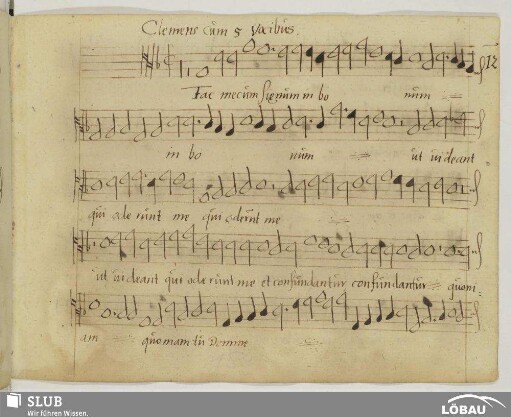 Clemens cum 5 Vocibus.
12
Fac mecum signum in bo num
in bo num ut videant
qui ode runt me qui oderunt me
ut videant qui ode runt me et confundantur confundantur quoni-
am quoniam tu Domine
SLUB
Wir führen Wissen.
LÖBAU